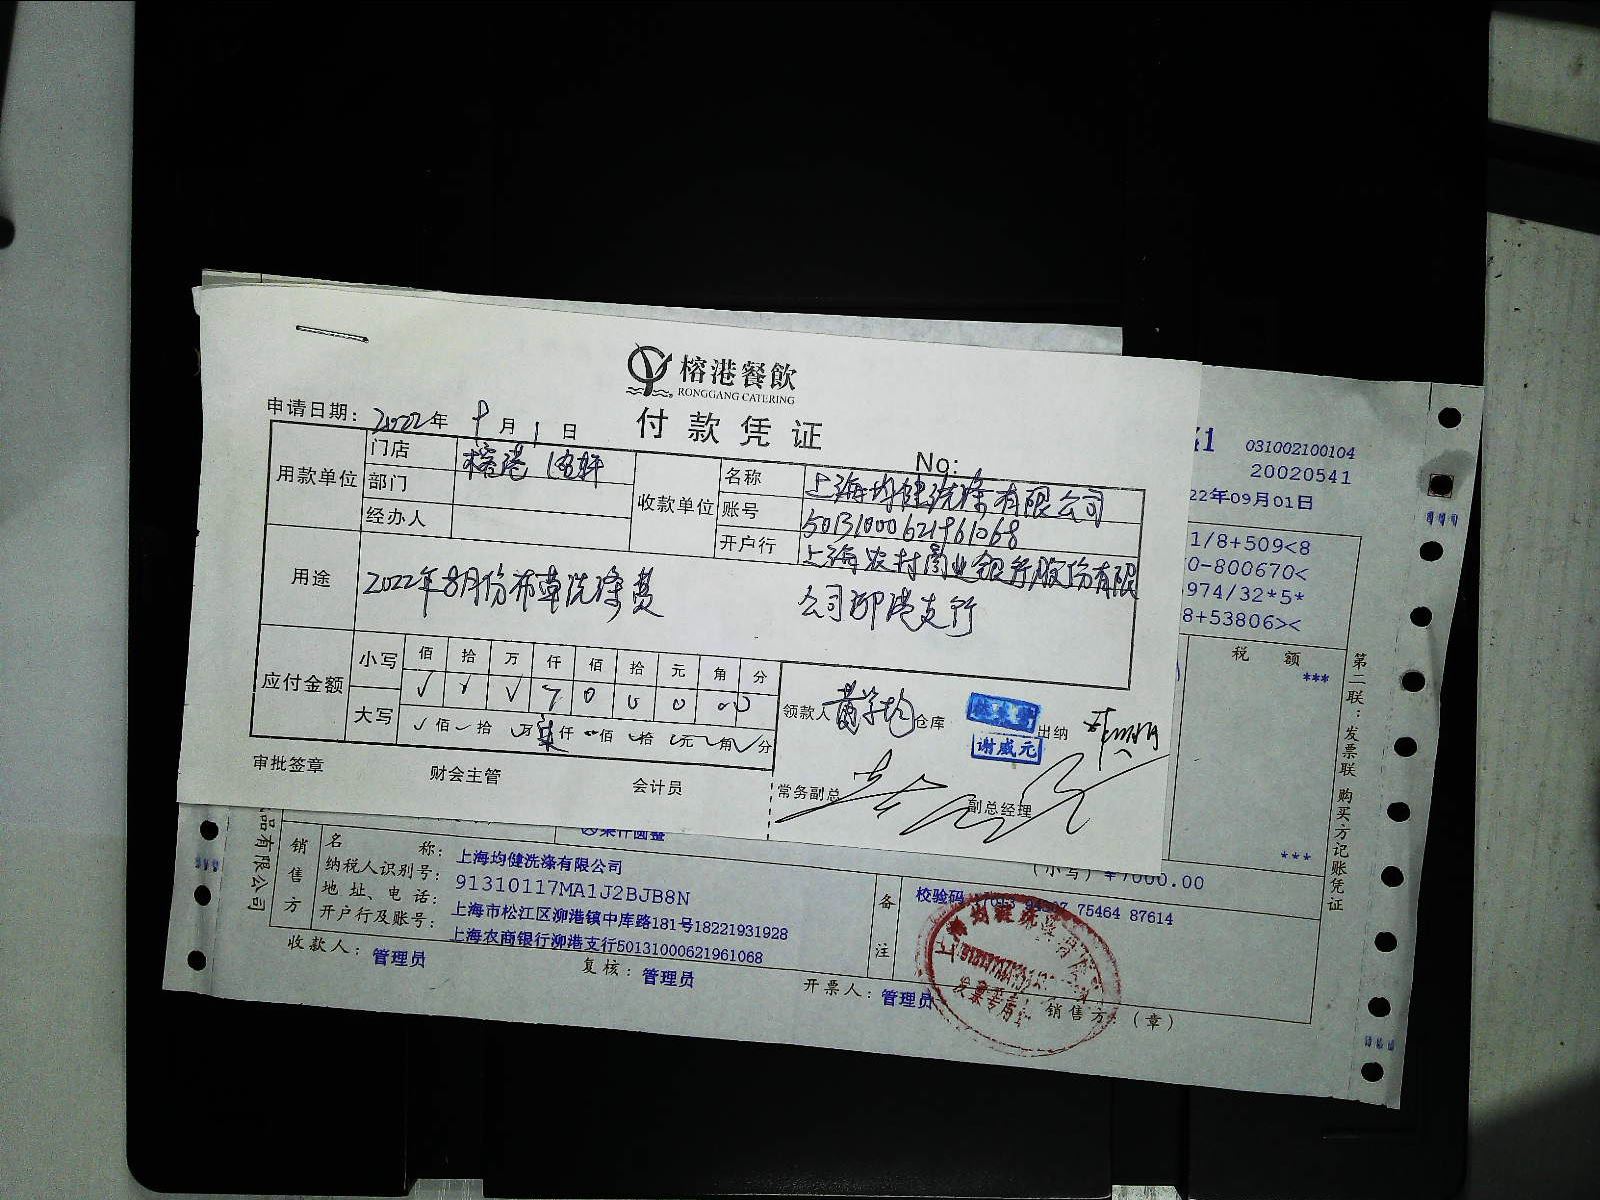 榕港餐飲
RONGGANG CATERING
付款凭证
申请日期: 2022年 9月 1日
No:
用款单位 门店 榕港
部门
经办人
收款单位 名称 上海均健洗涤有限公司
账号 50131000621961068
开户行 上海农村商业银行股份有限
公司泖港支行
用途 2022年8月份布草洗涤费
应付金额 小写 佰 拾 万 仟 佰 拾 元 角 分
✓ ✓ ✓ 7 0 0 0 0 0
大写 佰 拾 万 柒仟 佰 拾 元 角 分
领款人 仓库 谢威元 出纳
审批签章 财会主管 会计员 常务副总 副总经理
031002100104
20020541
22年09月01日
1/8+509<8
0-800670<
974/32*5*
8+53806><
税 额
***
***
第二联:发票联 购买方记账凭证
(小写) ¥7000.00
品有限公司
销售方
名 称: 上海均健洗涤有限公司
纳税人识别号: 91310117MA1J2BJB8N
地址、电话: 上海市松江区泖港镇中库路181号18221931928
开户行及账号: 上海农商银行泖港支行50131000621961068
备注
校验码 75464 87614
收款人: 管理员
复核: 管理员
开票人: 管理员
销售方:(章)
发票专用章